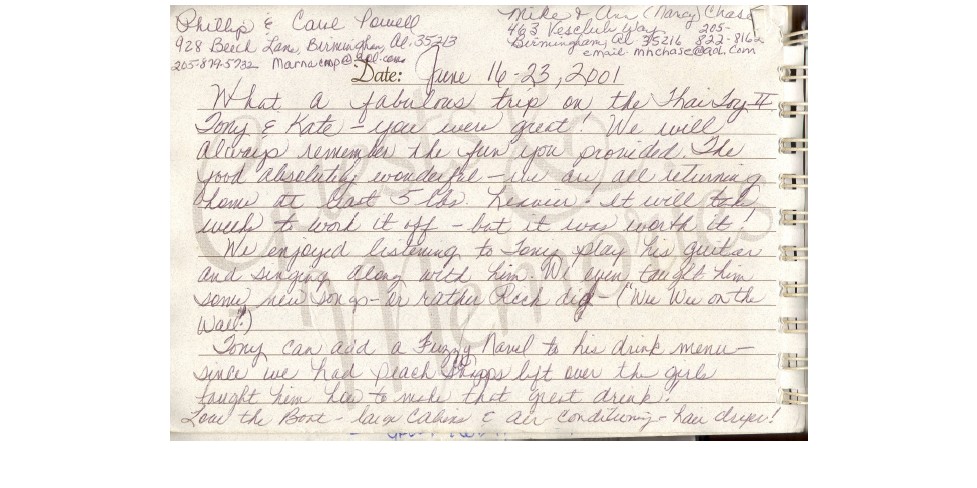 Phillip & Carol Powell
928 Beech Lane, Birmingham, Al. 35213
205-879-5732 Marnacmp@aol.com
Mike & Ann (Nancy) Chase
463 Vesclub Way 205-
Birmingham, Al 35216 822-8162
email mnchase@aol.com
Date: June 16-23, 2001
What a fabulous trip on the ThaiToy II
Tony & Kate - you were great! We will
always remember the fun you provided. The
food absolutely wonderful - we are all returning
home at least 5 lbs. heavier. It will take
weeks to work it off - but it was worth it!
We enjoyed listening to Tony play his guitar
and singing along with him. We even taught him
some new songs - or rather Rick did - ("Wee Wee on the
Wall")
Tony can add a Fuzzy Navel to his drink menu -
since we had peach Shnapps left over the girls
taught him how to make that great drink!
Love the Boat - large cabins & air-conditioning - hair dryer!
Guest
Memories